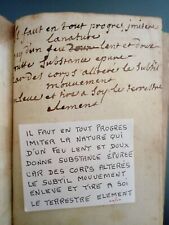 Il faut en tout progres imiter
la nature
qui d'un feu doux lent et doux
donne substance epuree
car des corps alteres le subtil
mouvement
enleve et tire a soy le terrestre
element
IL FAUT EN TOUT PROGRES
IMITER LA NATURE QUI
D'UN FEU LENT ET DOUX
DONNE SUBSTANCE ÉPURÉE
CAR DES CORPS ALTERÉS
LE SUBTIL MOUVEMENT
ENLEVE ET TIRE A SOI
LE TERRESTRE ELEMENT